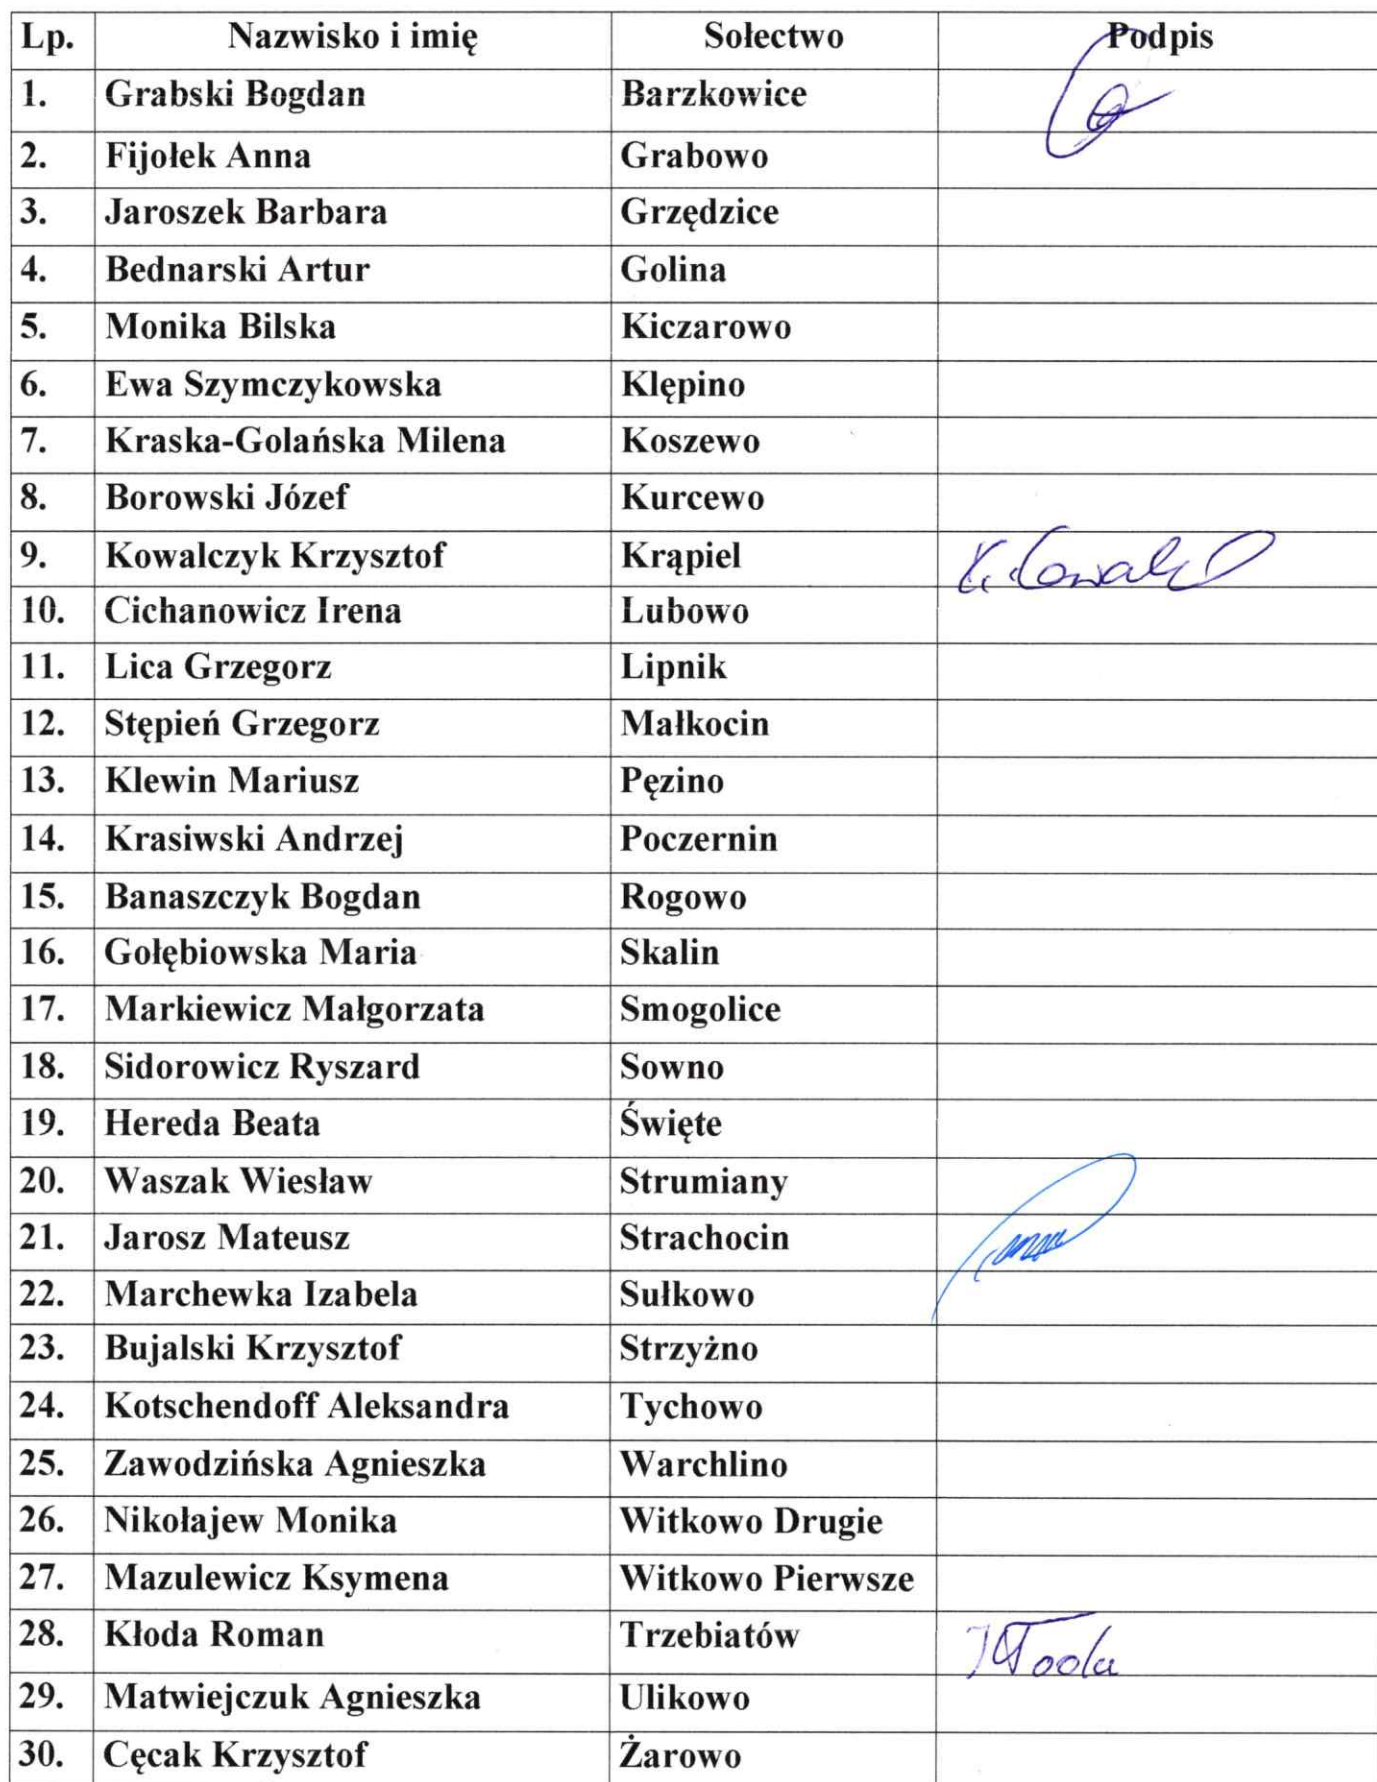 Lp. Nazwisko i imię Sołectwo Podpis
1. Grabski Bogdan Barzkowice
2. Fijołek Anna Grabowo
3. Jaroszek Barbara Grzędzice
4. Bednarski Artur Golina
5. Monika Bilska Kiczarowo
6. Ewa Szymczykowska Klępino
7. Kraska-Golańska Milena Koszewo
8. Borowski Józef Kurcewo
9. Kowalczyk Krzysztof Krąpiel
10. Cichanowicz Irena Lubowo
11. Lica Grzegorz Lipnik
12. Stępień Grzegorz Małkocin
13. Klewin Mariusz Pęzino
14. Krasiwski Andrzej Poczernin
15. Banaszczyk Bogdan Rogowo
16. Gołębiowska Maria Skalin
17. Markiewicz Małgorzata Smogolice
18. Sidorowicz Ryszard Sowno
19. Hereda Beata Święte
20. Waszak Wiesław Strumiany
21. Jarosz Mateusz Strachocin
22. Marchewka Izabela Sułkowo
23. Bujalski Krzysztof Strzyżno
24. Kotschendoff Aleksandra Tychowo
25. Zawodzińska Agnieszka Warchlino
26. Nikołajew Monika Witkowo Drugie
27. Mazulewicz Ksymena Witkowo Pierwsze
28. Kłoda Roman Trzebiatów Kłoda
29. Matwiejczuk Agnieszka Ulikowo
30. Cęcak Krzysztof Żarowo